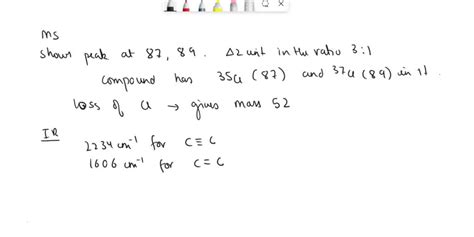 MS
Shows peak at 87, 89. Δ2 unit in the ratio 3:1
compound has 35Cl (87) and 37Cl (89) in it.
loss of Cl → gives mass 52
IR
2234 cm⁻¹ for C≡C
1606 cm⁻¹ for C=C